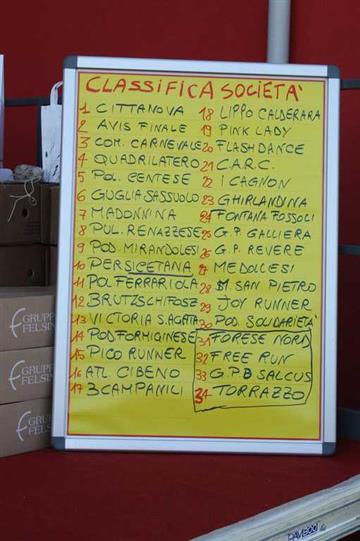 CLASSIFICA SOCIETA'
1 CITTANOVA
2 AVIS FINALE
3 COM. CARNEVALE
4 QUADRILATERO
5 POL. CENTESE
6 GUGLIA SASSUOLO
7 MADONNINA
8 PUL. RENAZZESE
9 POD. MIRANDOLESI
10 PERSICETANA
11 POL FERRARIOLA
12 BRUTZSCHIFOSZ
13 VICTORIA S. AGATA
14 POD FORMIGINESE
15 PICO RUNNER
16 ATL CIBENO
17 3 CAMPANILI
18 LIPPO CALDERARA
19 PINK LADY
20 FLASH DANCE
21 C.A.R.C.
22 I CAGNON
23 GHIRLANDINA
24 FONTANA FOSSOLI
25 G.P. GALLIERA
26 G.P. REVERE
27 MEDOLLESI
28 M. SAN PIETRO
29 JOY RUNNER
30 POD. SOLIDARIETA'
31 FORESE NORD
32 FREE RUN
33 G.P.B SALCUS
34 TORRAZZO
GRUPP
FELSIN
GRUPP
FELSIN